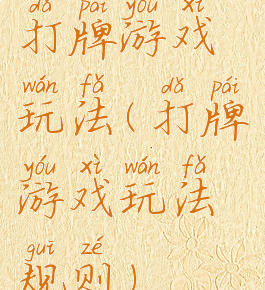 dǎ pái yóu xì
打牌游戏
wán fǎ dǎ pái
玩法(打牌
yóu xì wán fǎ
游戏玩法
guī zé
规则)